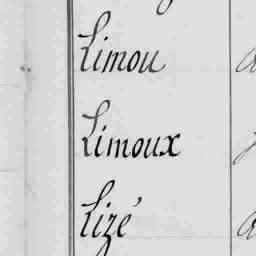 Limou
Limoux
Lizé